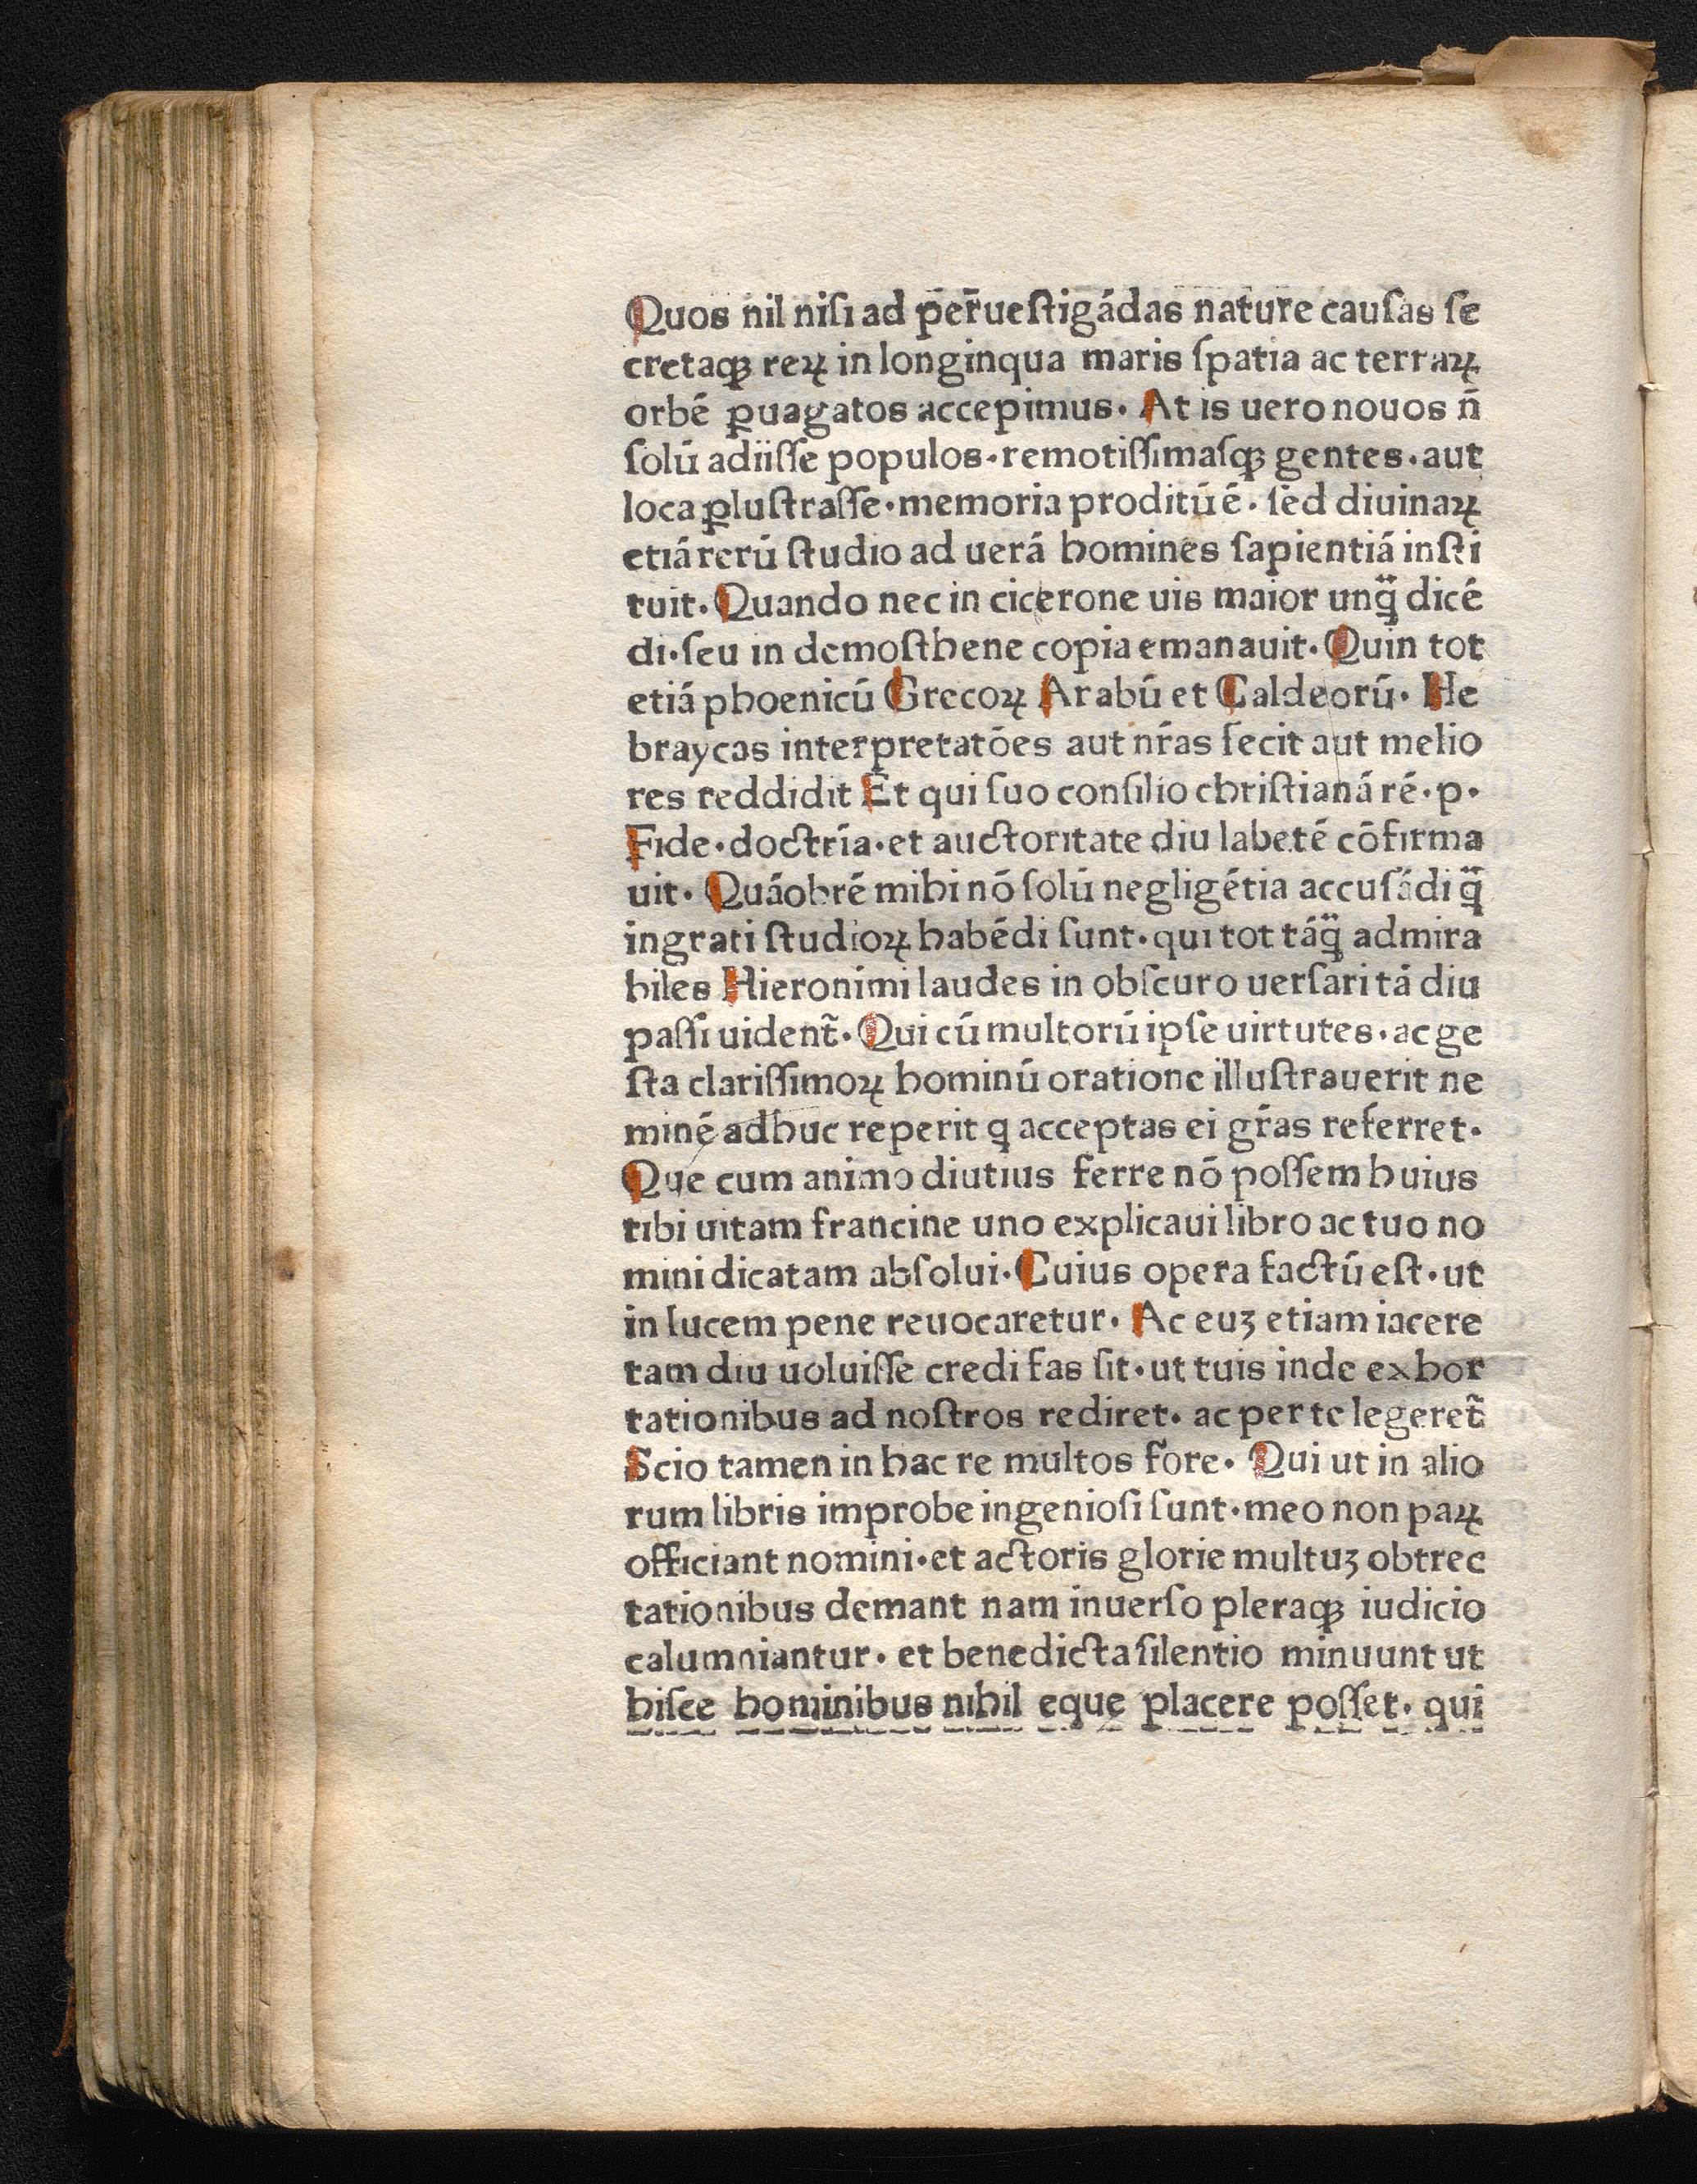 Quos nil niſi ad per̄ueſtigādas nature cauſas ſe
cretaqꝫ reꝝ in longinqua maris ſpatia ac terraꝝ
orbē ꝑuagatos accepimus· At is uero nouos n̄
ſolū adiiſſe populos·remotiſſimaſqꝫ gentes·aut
loca ꝑluſtraſſe·memoria proditū ē· ſed diuinaꝝ
etiā rerū ſtudio ad uerā homines ſapientiā inſti
tuit· Quando nec in cicerone uis maior unq̄ dicē
di·ſeu in demoſthene copia emanauit· Quin tot
etiā phoenicū Grecoꝝ Arabū et Caldeorū· He
braycas interpretatōes aut nr̄as fecit aut melio
res reddidit Et qui ſuo conſilio chriſtianā rē·p·
Fide·doctrīa·et auctoritate diu labētē cōfirma
uit· Quāobrē mihi nō ſolū negligētia accuſādi q̄
ingrati ſtudioꝝ habēdi ſunt·qui tot tāq̄ admira
biles Hieronimi laudes in obſcuro uerſari tā diu
paſſi uident̄· Qui cū multorū ipſe uirtutes·ac ge
ſta clariſſimoꝝ hominū oratione illuſtrauerit ne
minē adhuc reperit q acceptas ei gr̄as referret·
Que cum animo diutius ferre nō poſſem huius
tibi uitam francine uno explicaui libro ac tuo no
mini dicatam abſolui· Cuius opera factū eſt·ut
in lucem pene reuocaretur· Ac euꝫ etiam iacere
tam diu uoluiſſe credi fas ſit·ut tuis inde exhor
tationibus ad noſtros rediret· ac per te legeret̄
Scio tamen in hac re multos fore· Qui ut in alio
rum libris improbe ingenioſi ſunt·meo non paꝝ
officiant nomini·et actoris glorie multuꝫ obtrec
tationibus demant nam inuerſo pleraqꝫ iudicio
calumniantur· et benedicta ſilentio minuunt ut
hiſce hominibus nihil eque placere poſſet· qui